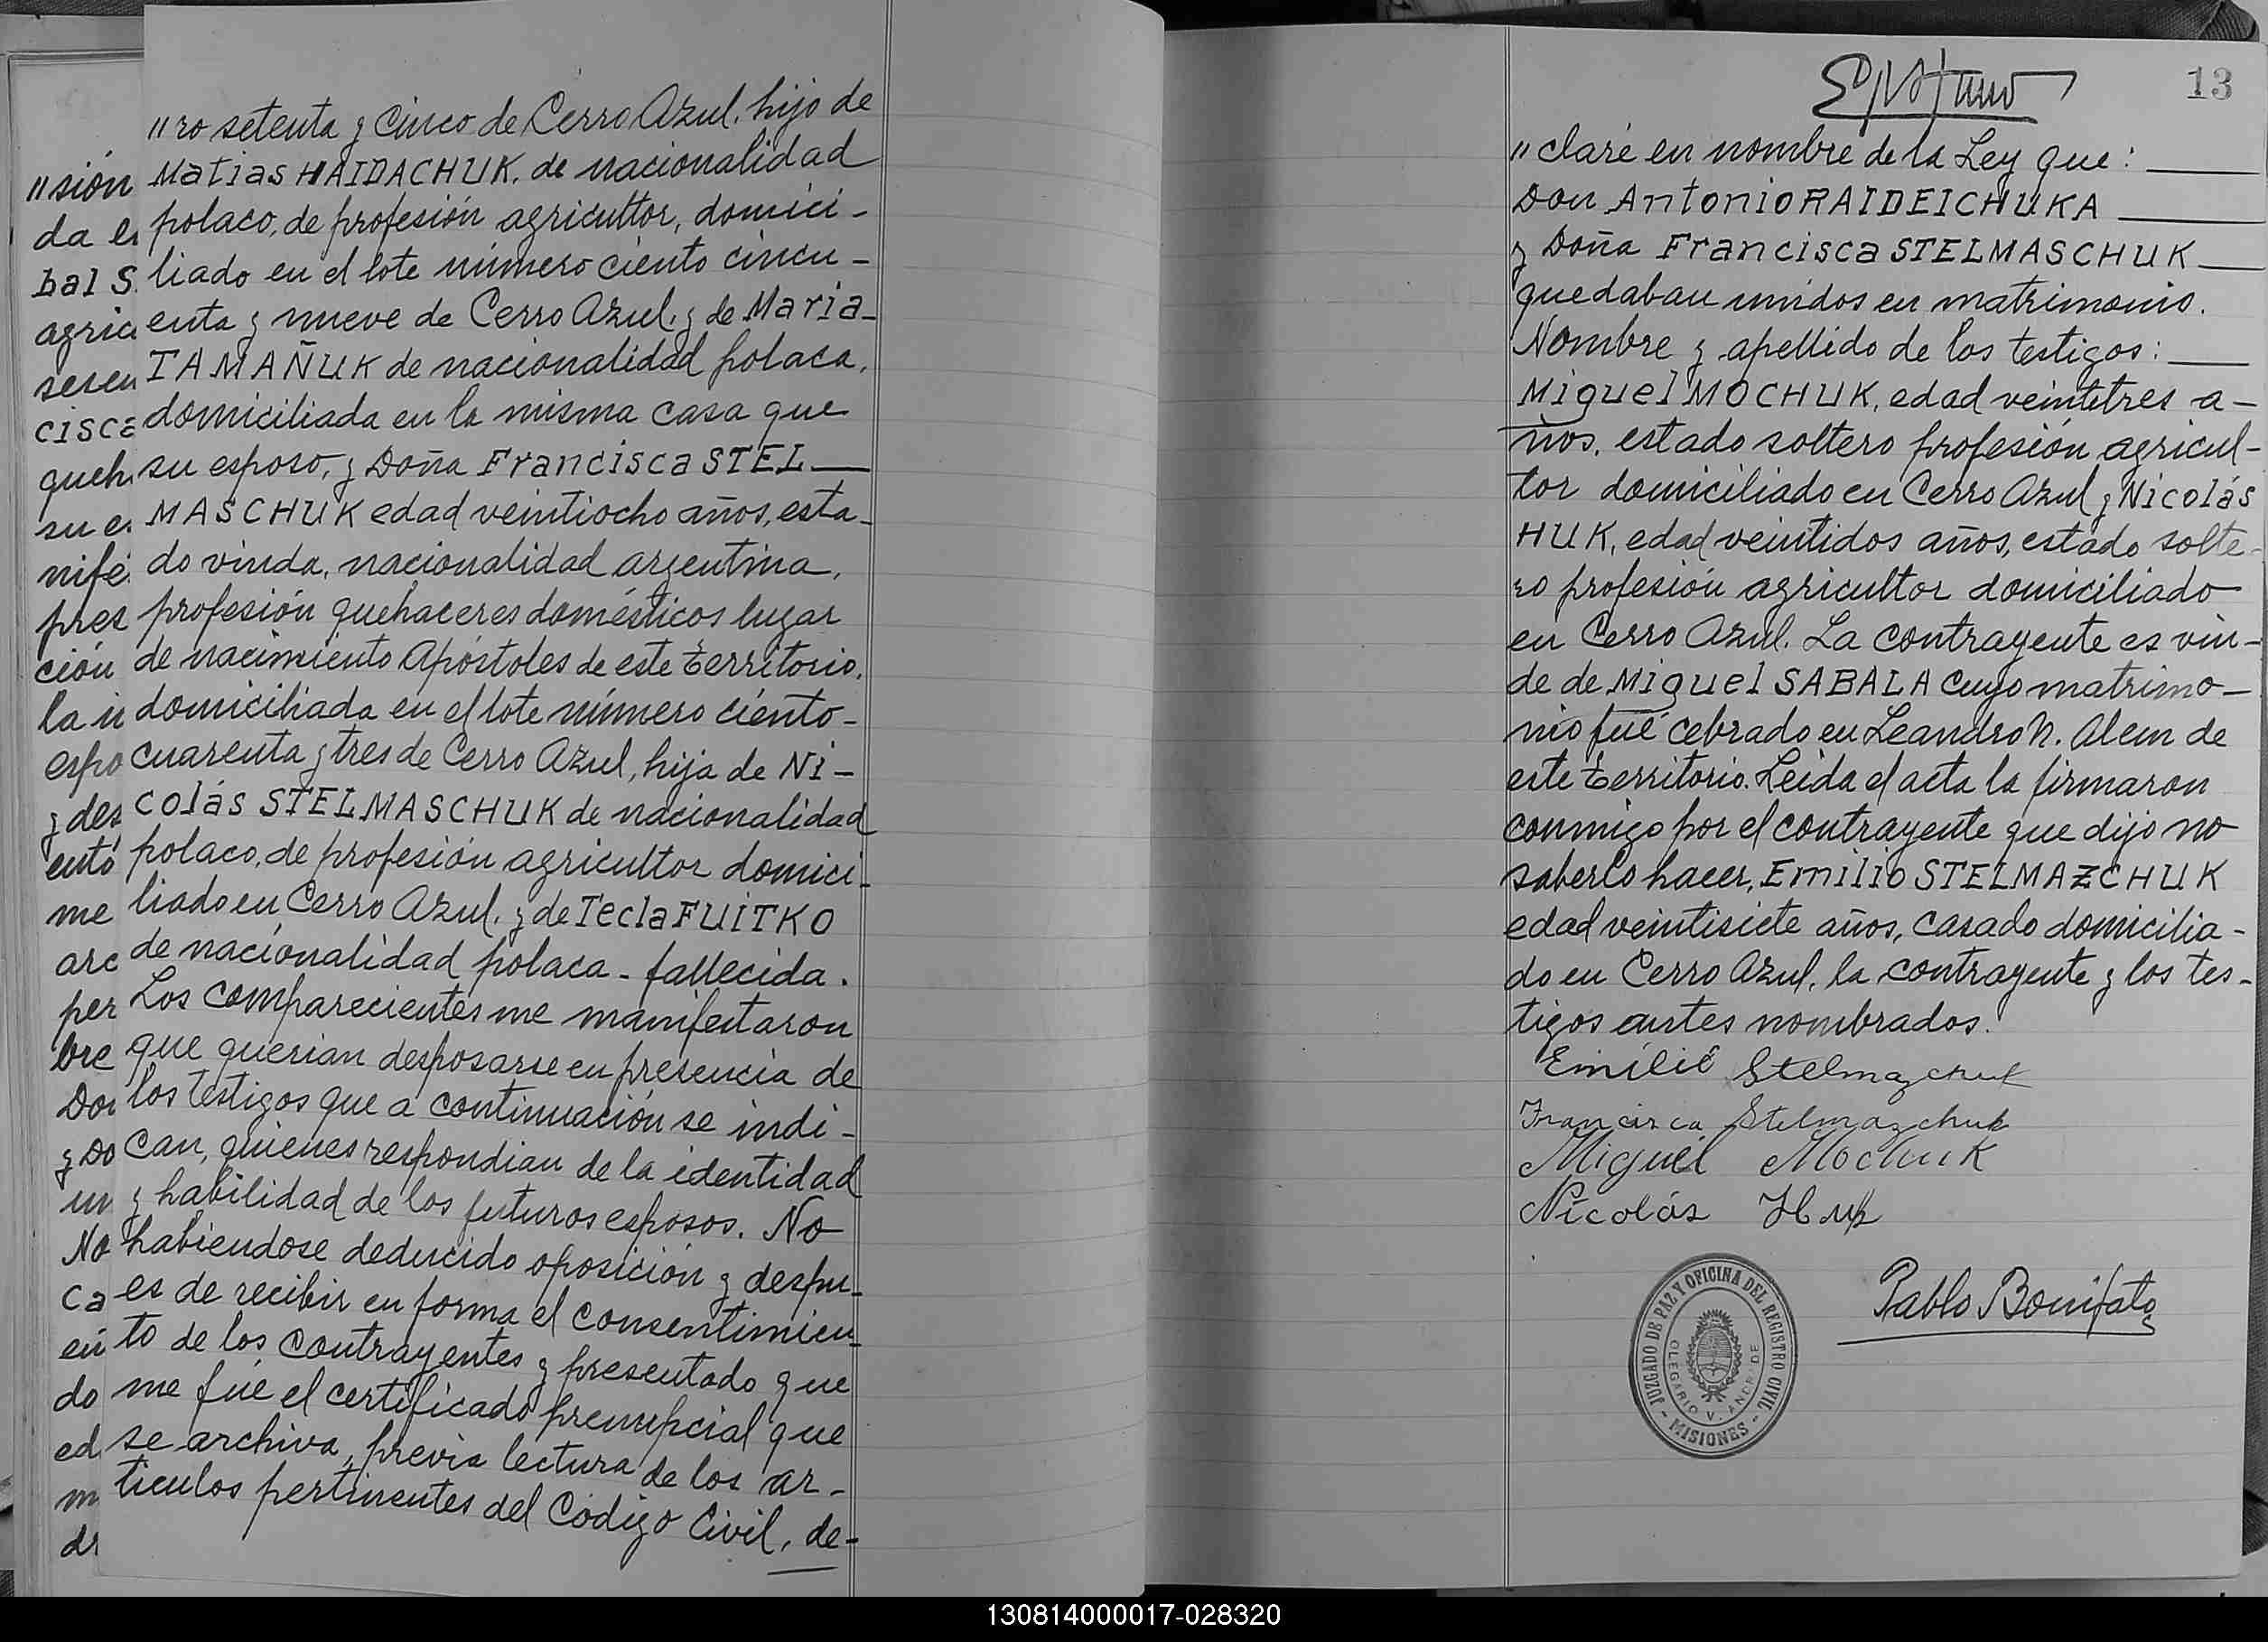 "ro setenta y cinco de Cerro Azul. hijo de
Matias HAIDACHUK. de nacionalidad
polaco, de profesión agricultor, domici-
liado en el lote número ciento cincu-
enta y nueve de Cerro Azul, y de Maria-
TAMAÑUK de nacionalidad polaca,
domiciliada en la misma casa que
su esposo, y Doña Francisca STEL
MASCHUK edad veintiocho años, esta-
do viuda, nacionalidad argentina,
profesión quehaceres domésticos lugar
de nacimiento Apóstoles de este territorio,
domiciliada en el lote número ciento-
cuarenta y tres de Cerro Azul, hija de Ni-
colás STELMASCHUK de nacionalidad
polaco, de profesión agricultor domici-
liado en Cerro Azul. y de Tecla FUITKO
de nacionalidad polaca - fallecida.
Los comparecientes me manifestaron
que querian desposarse en presencia de
los testigos que a continuación se indi-
can, quienes respondian de la identidad
y habilidad de los futuros esposos. No
habiendose deducido oposición y despu-
es de recibir en forma el consentimien-
to de los contrayentes y presentado que
me fué el certificado prenupcial que
se archiva, previa lectura de los ar-
ticulos pertinentes del Código Civil, de-
"sión
da e
bal S
agric
sesen
cisca
queh
su e
nife
pres
ción
la i
espo
y des
ento
me
arc
per
bre
Do
y Do
un
No
ca
en
do
ed
m
d
13
"claré en nombre de la Ley que:
Don Antonio RAIDEICHUKA
y Doña Francisca STELMASCHUK
quedaban unidos en matrimonio.
Nombre y apellido de los testigos:
Miguel MOCHUK, edad veintetres a-
ños, estado soltero profesión agricul-
tor domiciliado en Cerro Azul y Nicolás
HUK, edad veintidos años, estado solte-
ro profesión agricultor domiciliado
en Cerro Azul. La contrayente es viu-
de de Miguel SABALA cuyo matrimo-
nio fué cebrado en Leandro N. Alem de
este territorio. Leida el acta la firmaron
conmigo por el contrayente que dijo no
saberlo hacer, Emilio STELMAZCHUK
edad veintisiete años, casado domicilia-
do en Cerro Azul, la contrayente y los tes-
tigos antes nombrados.
Emilio Stelmazchuk
Francisca Stelmazchuk
Miguel Mochuk
Nicolás Huk
Pablo Bonifato
JUZGADO DE PAZ Y OFICINA DEL REGISTRO CIVIL
OLEGARIO V. ANDRADE
- MISIONES -
130814000017-028320